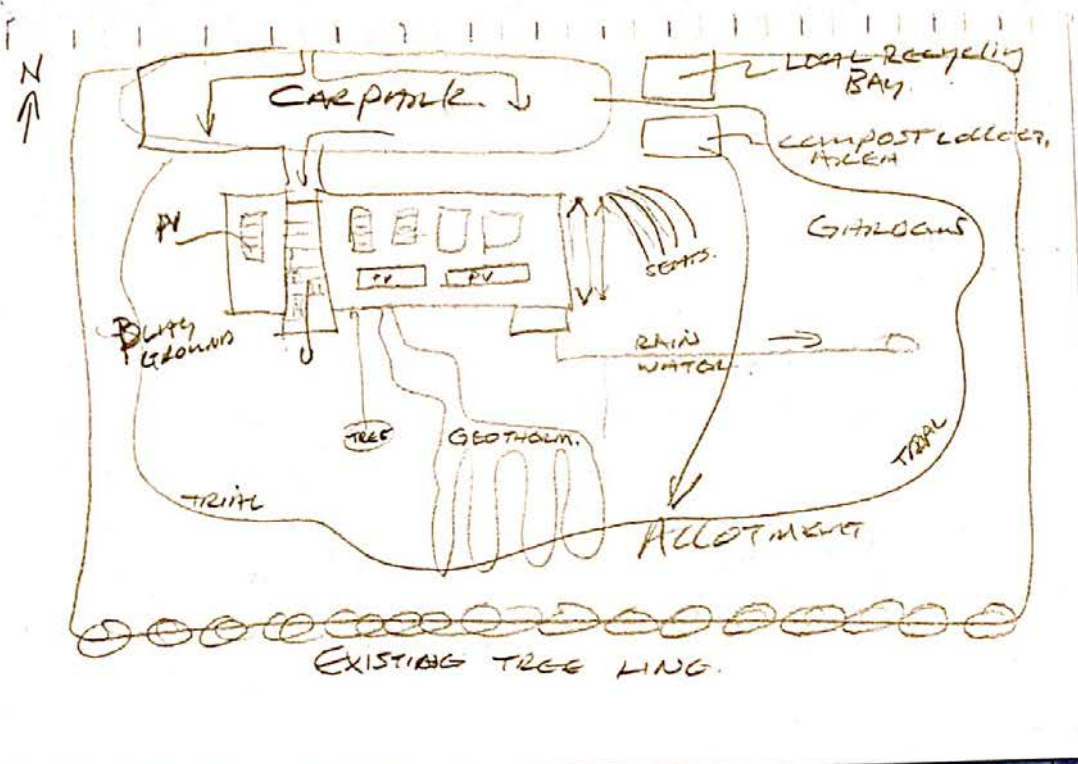 N
CARPARK.
LOCAL RECYCLING
BAY.
COMPOST COLLECT.
AREA
PV
GARDENS
SEATS.
PV
PV
PLAY
GROUND
RAIN
WATER
TREE
GEOTHERM.
TRAIL
TRAIL
ALLOTMENT
EXISTING TREE LINE.